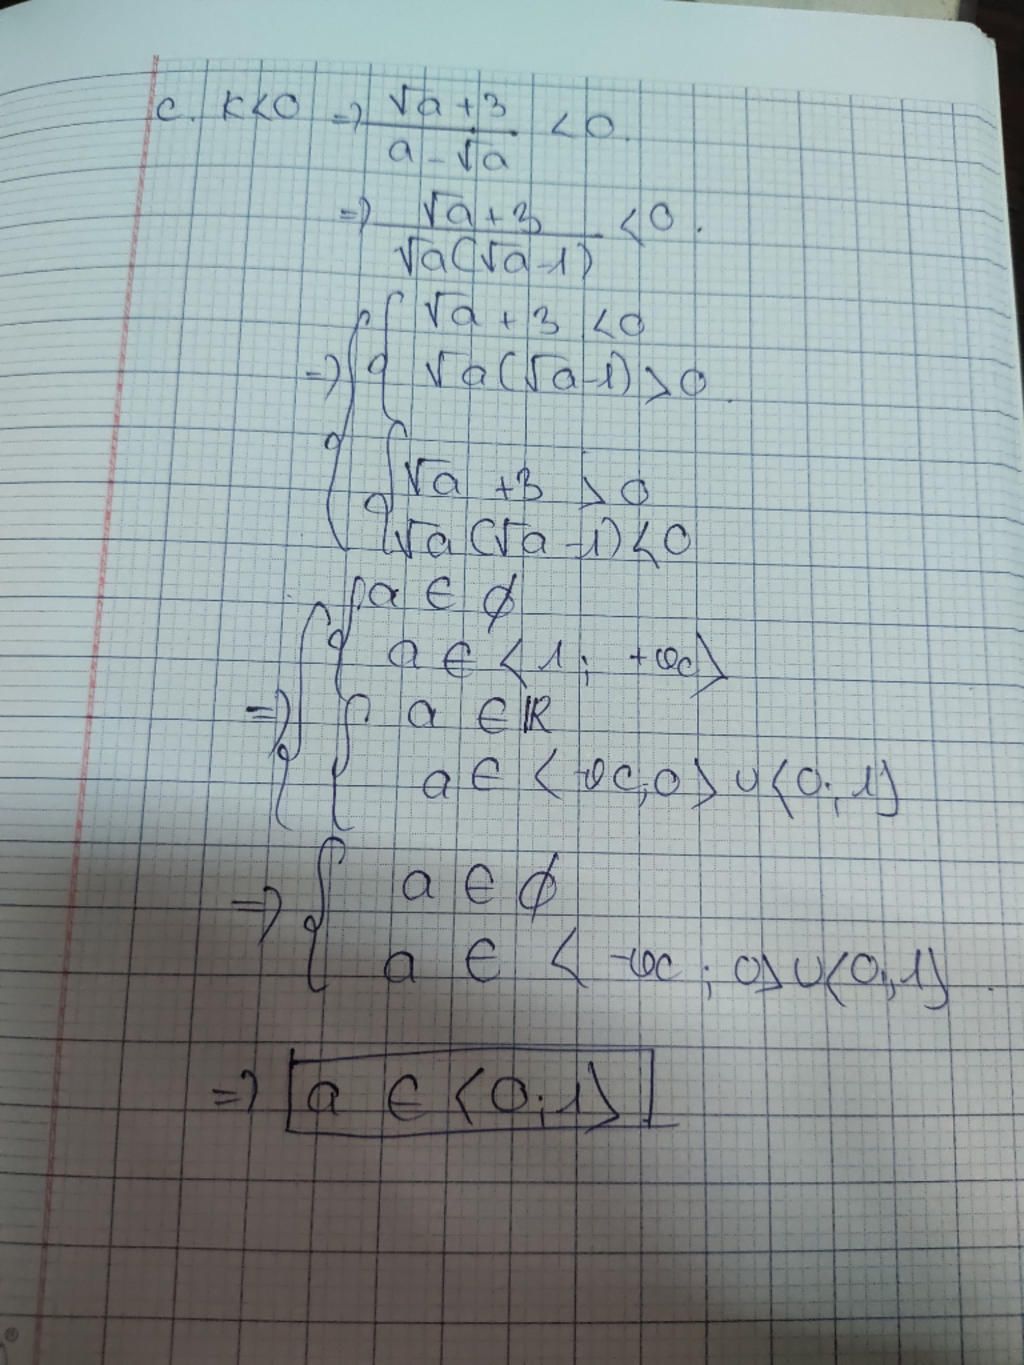 c. K<0 => (√a + 3)/(a - √a) < 0.
=> (√a + 3)/(√a(√a-1)) < 0.
=> { { √a + 3 < 0
√a(√a-1) > 0.
{ √a + 3 > 0
√a(√a-1) < 0
=> { { a ∈ ∅
a ∈ <1; +∞>
{ a ∈ ℝ
a ∈ <-∞; 0> ∪ <0; 1>
=> { a ∈ ∅
a ∈ <-∞; 0> ∪ <0; 1>.
=> a ∈ <0; 1>